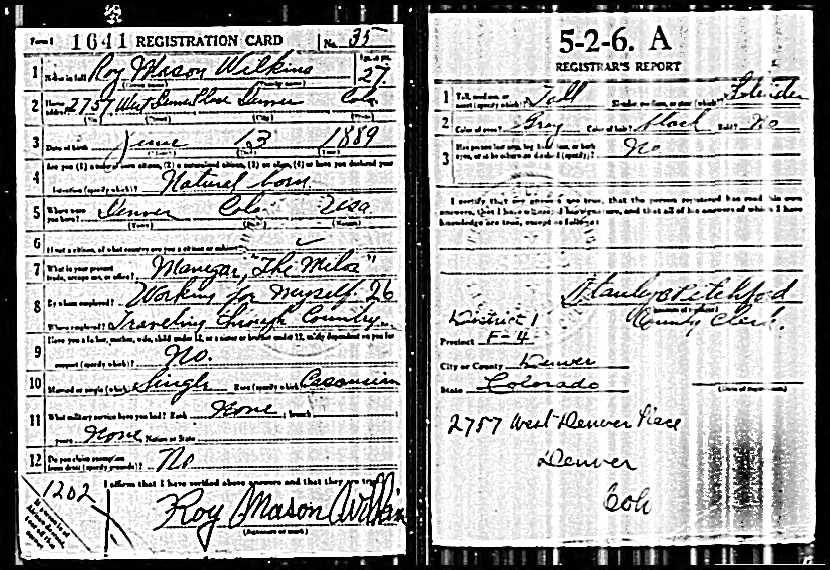 Form 1 1641 REGISTRATION CARD No. 35
1 Name in full Roy Mason Wilkins Age, in yrs. 27
2 Home address 2757 West Denver Place Denver Colo
3 Date of birth June 13 1889
4 Are you (1) a natural born citizen, (2) a naturalized citizen, (3) an alien, (4) or have you declared your
intention (specify which)? Natural born
5 Where were you born? Denver Colo USA
(Town) (State) (Nation)
6 If not a citizen, of what country are you a citizen or subject?
7 What is your present trade, occupation, or office? Manager, "The
8 By whom employed? Working for myself 26
Where employed? Traveling through Country
9 Have you a father, mother, wife, child under 12, or a sister or brother under 12, solely dependent on you for
support (specify which)? No.
10 Married or single (which)? Single Race (specify which)? Caucasian
11 What military service have you had? Rank None ; branch
years None Nation or State
12 Do you claim exemption from draft (specify grounds)? No
I affirm that I have verified above answers and that they are true.
1202
Roy Mason Wilkins
(Signature or mark)
5-2-6. A
REGISTRAR'S REPORT
1 Tall, medium, or short (specify which)? Tall Slender, medium, or stout (which)? Slender
2 Color of eyes? Gray Color of hair? Black Bald? No
3 Has person lost arm, leg, hand, foot, or both eyes, or is he otherwise disabled (specify)? No
I certify that my answers are true, that the person registered has read his own
answers, that I have witnessed his signature, and that all of his answers of which I have
knowledge are true, except as follows:
Stanley B Pitchford
(Signature of registrar)
County Clerk.
District 1
Precinct F-4
City or County Denver
State Colorado
(Date of registration)
2757 West Denver Place
Denver
Colo